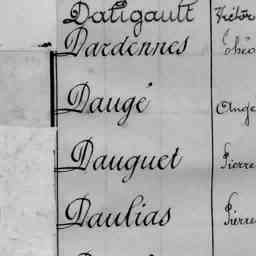 Datigault Victor
Dardennes Théo
Daugé Ange
Dauguet Pierre
Daulias Pierre